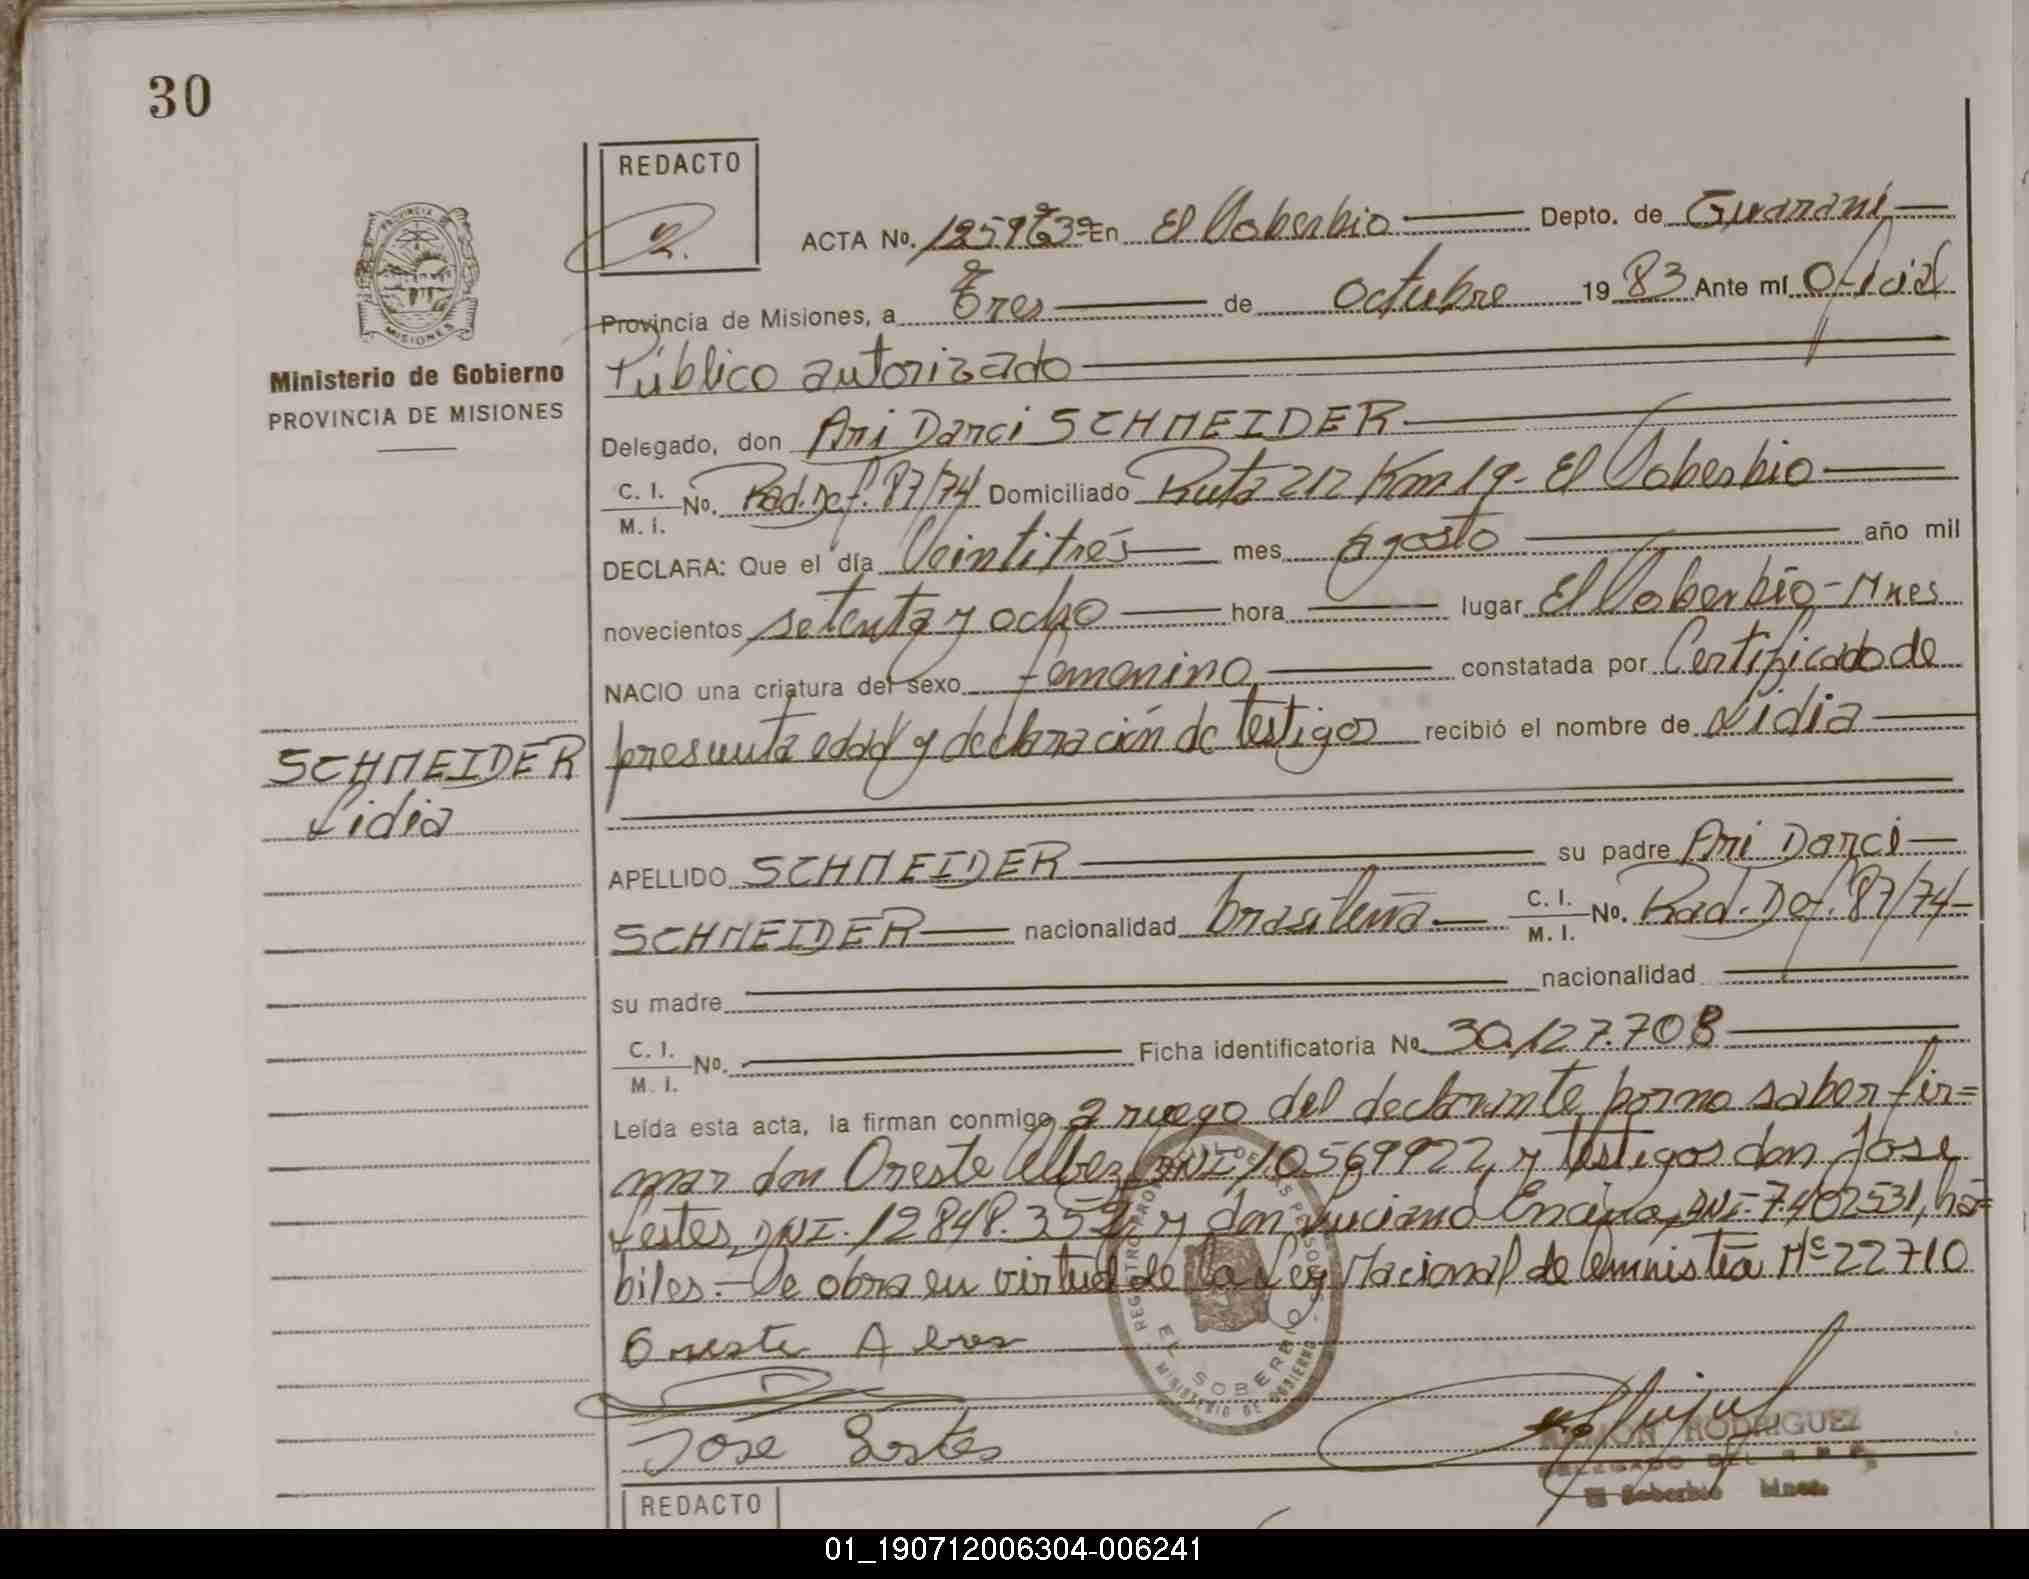 30
REDACTO
ACTA No. En El Soberbio Depto. de Guaraní
Provincia de Misiones, a Tres de Octubre 1983 Ante mí Oficial
Público autorizado
PROVINCIA DE
MISIONES
Ministerio de Gobierno
PROVINCIA DE MISIONES
Delegado, don Ari Darci SCHNEIDER
C. I.
M. I. No. Rad. Def. 87/74 Domiciliado Ruta 212 Km 19 - El Soberbio
DECLARA: Que el día Veintitrés mes Agosto año mil
novecientos setenta y ocho hora lugar El Soberbio - Mnes
NACIO una criatura del sexo femenino constatada por Certificado de
presunta edad y declaración de testigos recibió el nombre de Lidia
SCHNEIDER
Lidia
APELLIDO SCHNEIDER su padre Ari Darci
SCHNEIDER nacionalidad brasileña C. I.
M. I. No. Rad. Def. 87/74-
su madre nacionalidad
C. I.
M. I. No. Ficha identificatoria No 30.127.708
Leída esta acta, la firman conmigo a ruego del declarante por no saber fir=
mar don Oreste Alvez, DNI 10569922, y testigos don Jose
DNI. 12848.352, y don Luciano Encina, DNI- 7.402531, há=
biles.- Se obra en virtud de la Ley Nacional de Amnistía Nº 22710
Oreste
Jose
REGISTRO PROVINCIAL DE LAS PERSONAS
EL SOBERBIO
MINISTERIO DE GOBIERNO
RAMON RODRIGUEZ
DELEGADO DEL R. P. P.
El Soberbio Mnes.
REDACTO
01_190712006304-006241